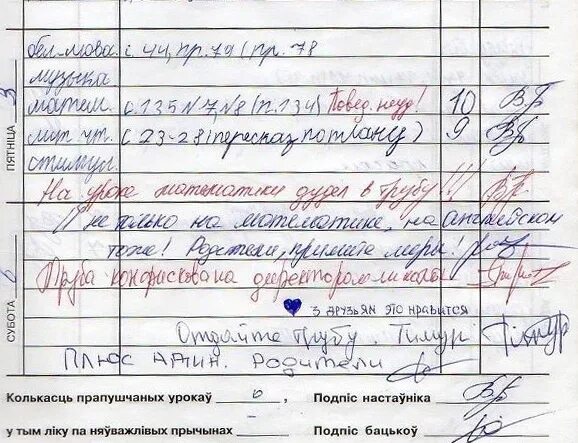 бел. мова. с. 44, пр. 79, пр. 78
музыка.
матем. с. 135 №7, №8 (п. 134) Повед. неуд! 10
ПЯТНІЦА 3
чт. с 23-28 (пересказ по плану) 9
стимул.
На уроке математики дудел в трубу!!!
И не только на математике, на английском
тоже! Родители, примите меры!
Труба конфискована директором школы
СУБОТА 6
3 друзьям это нравится
Отдайте трубу. Тимур
Плюс один. Родители
Колькасць прапушчаных урокаў 6, Подпіс настаўніка
у тым ліку па няўважлівых прычынах Подпіс бацькоў